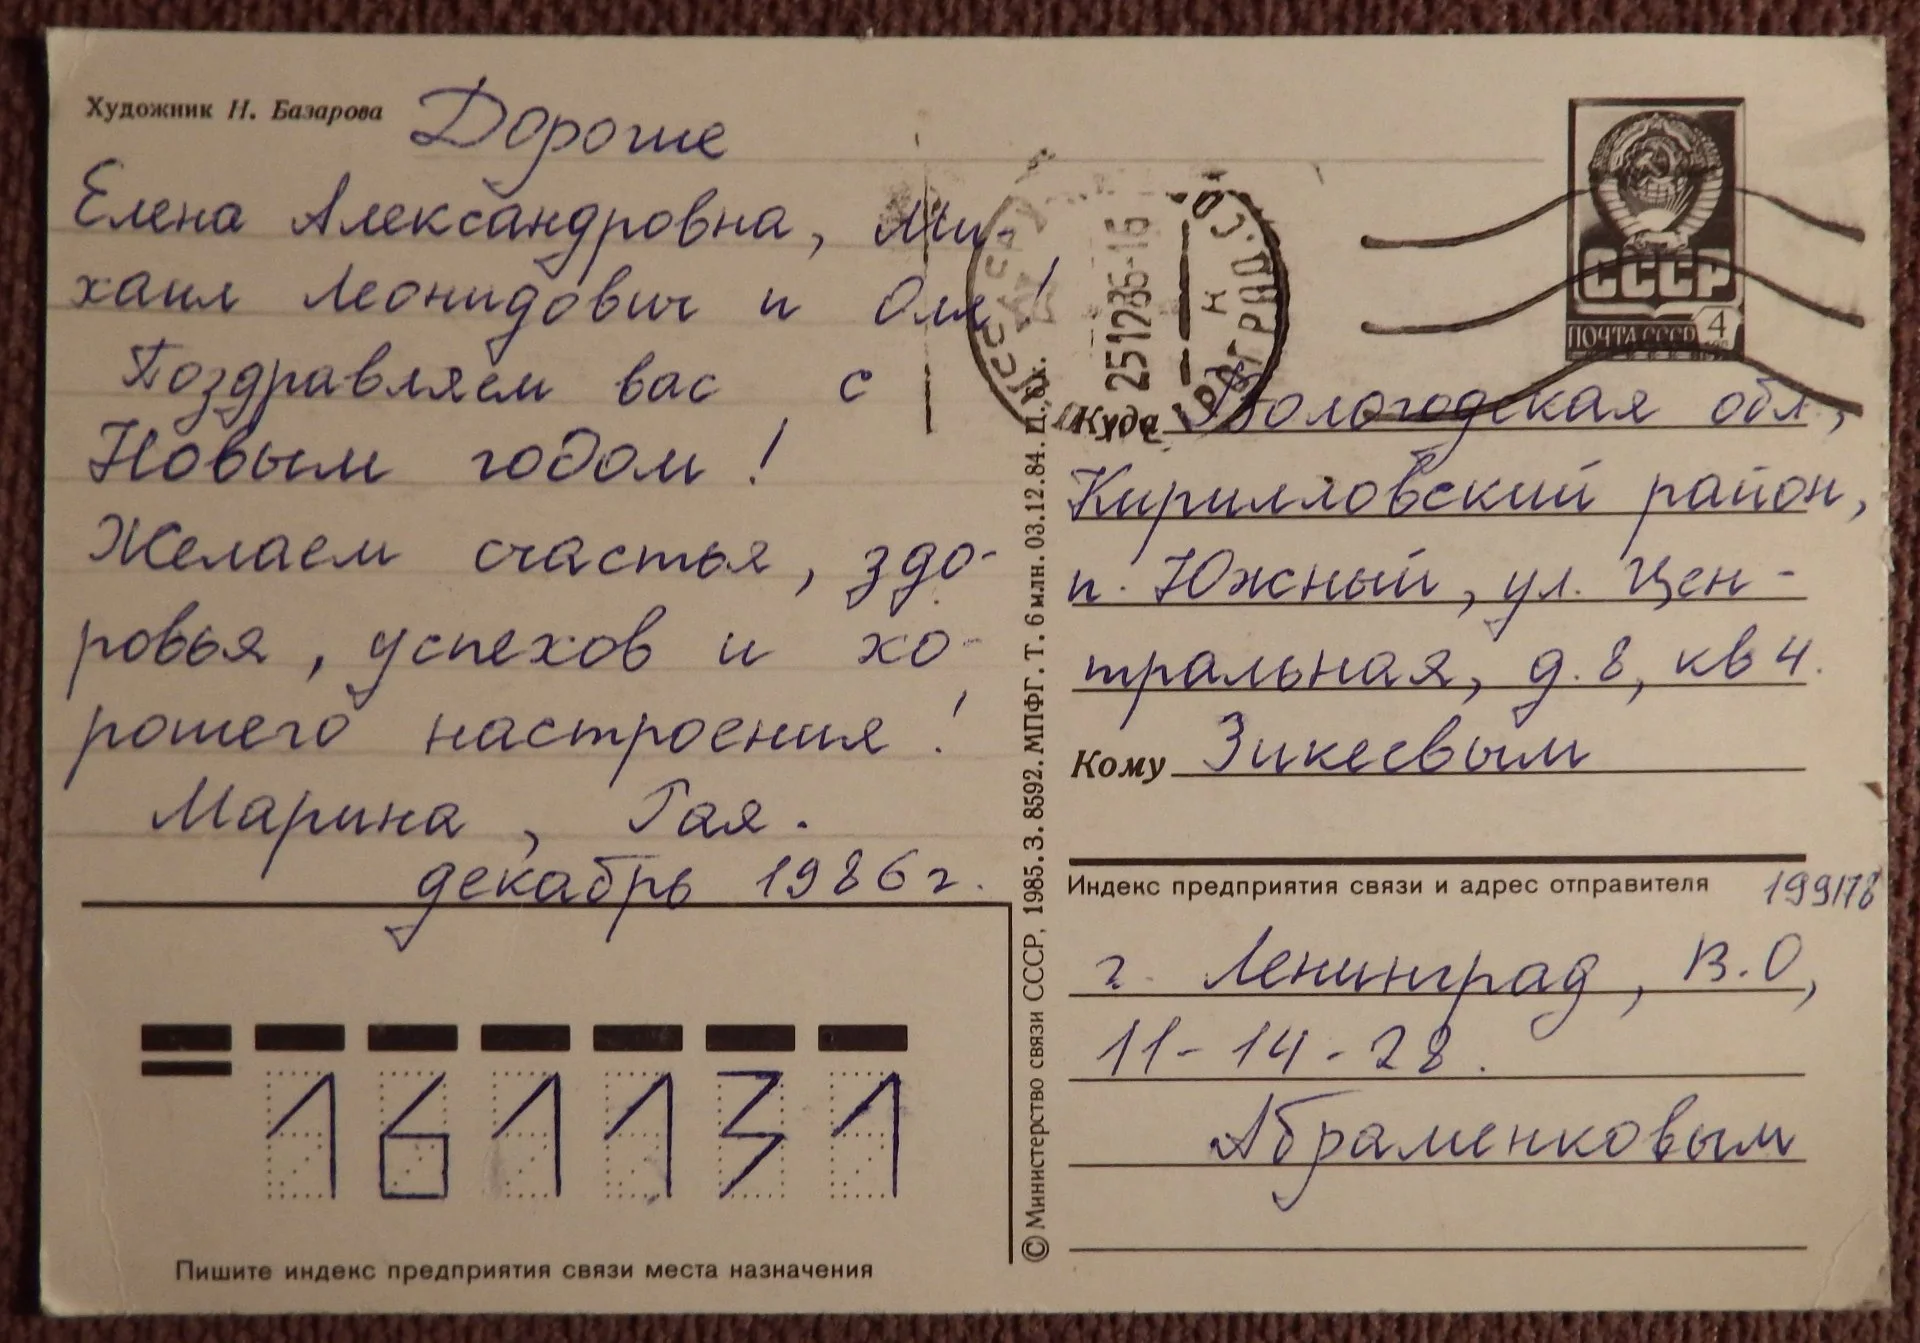 Художник Н. Базарова
Дорогие
Елена Александровна, Ми-
хаил Леонидович и Оля!
Поздравляем вас с
Новым годом!
Желаем счастья, здо-
ровья, успехов и хо-
рошего настроения!
Марина, Гая.
декабрь 1986 г.
161131
Пишите индекс предприятия связи места назначения
© Министерство связи СССР, 1985. З. 8592. МПФГ. Т. 6 млн. 03.12.84. Ц. 6 к.
251286-16
СССР
ПОЧТА СССР 4
Куда Вологодская обл.,
Кирилловский район,
п. Южный, ул. Цен-
тральная, д. 8, кв 4.
Кому Зикеевым
Индекс предприятия связи и адрес отправителя 199178
г. Ленинград, В.О,
11-14-28.
Абраменковым